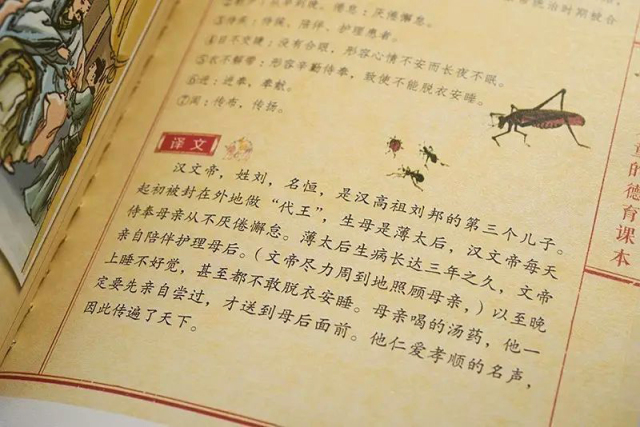 倦怠：厌倦懈怠。
③侍疾：侍候、陪伴、护理患者。
④目不交睫：没有合眼，形容心情不安而长夜不眠。
⑤衣不解带：形容辛勤侍奉，致使不能脱衣安睡。
⑥进：进奉，奉献。
⑦闻：传布，传扬。
译文
汉文帝，姓刘，名恒，是汉高祖刘邦的第三个儿子。
起初被封在外地做“代王”，生母是薄太后，汉文帝每天
侍奉母亲从不厌倦懈怠。薄太后生病长达三年之久，文帝
亲自陪伴护理母后。（文帝尽力周到地照顾母亲，）以至晚
上睡不好觉，甚至都不敢脱衣安睡。母亲喝的汤药，他一
定要先亲自尝过，才送到母后面前。他仁爱孝顺的名声，
因此传遍了天下。
的德育课本